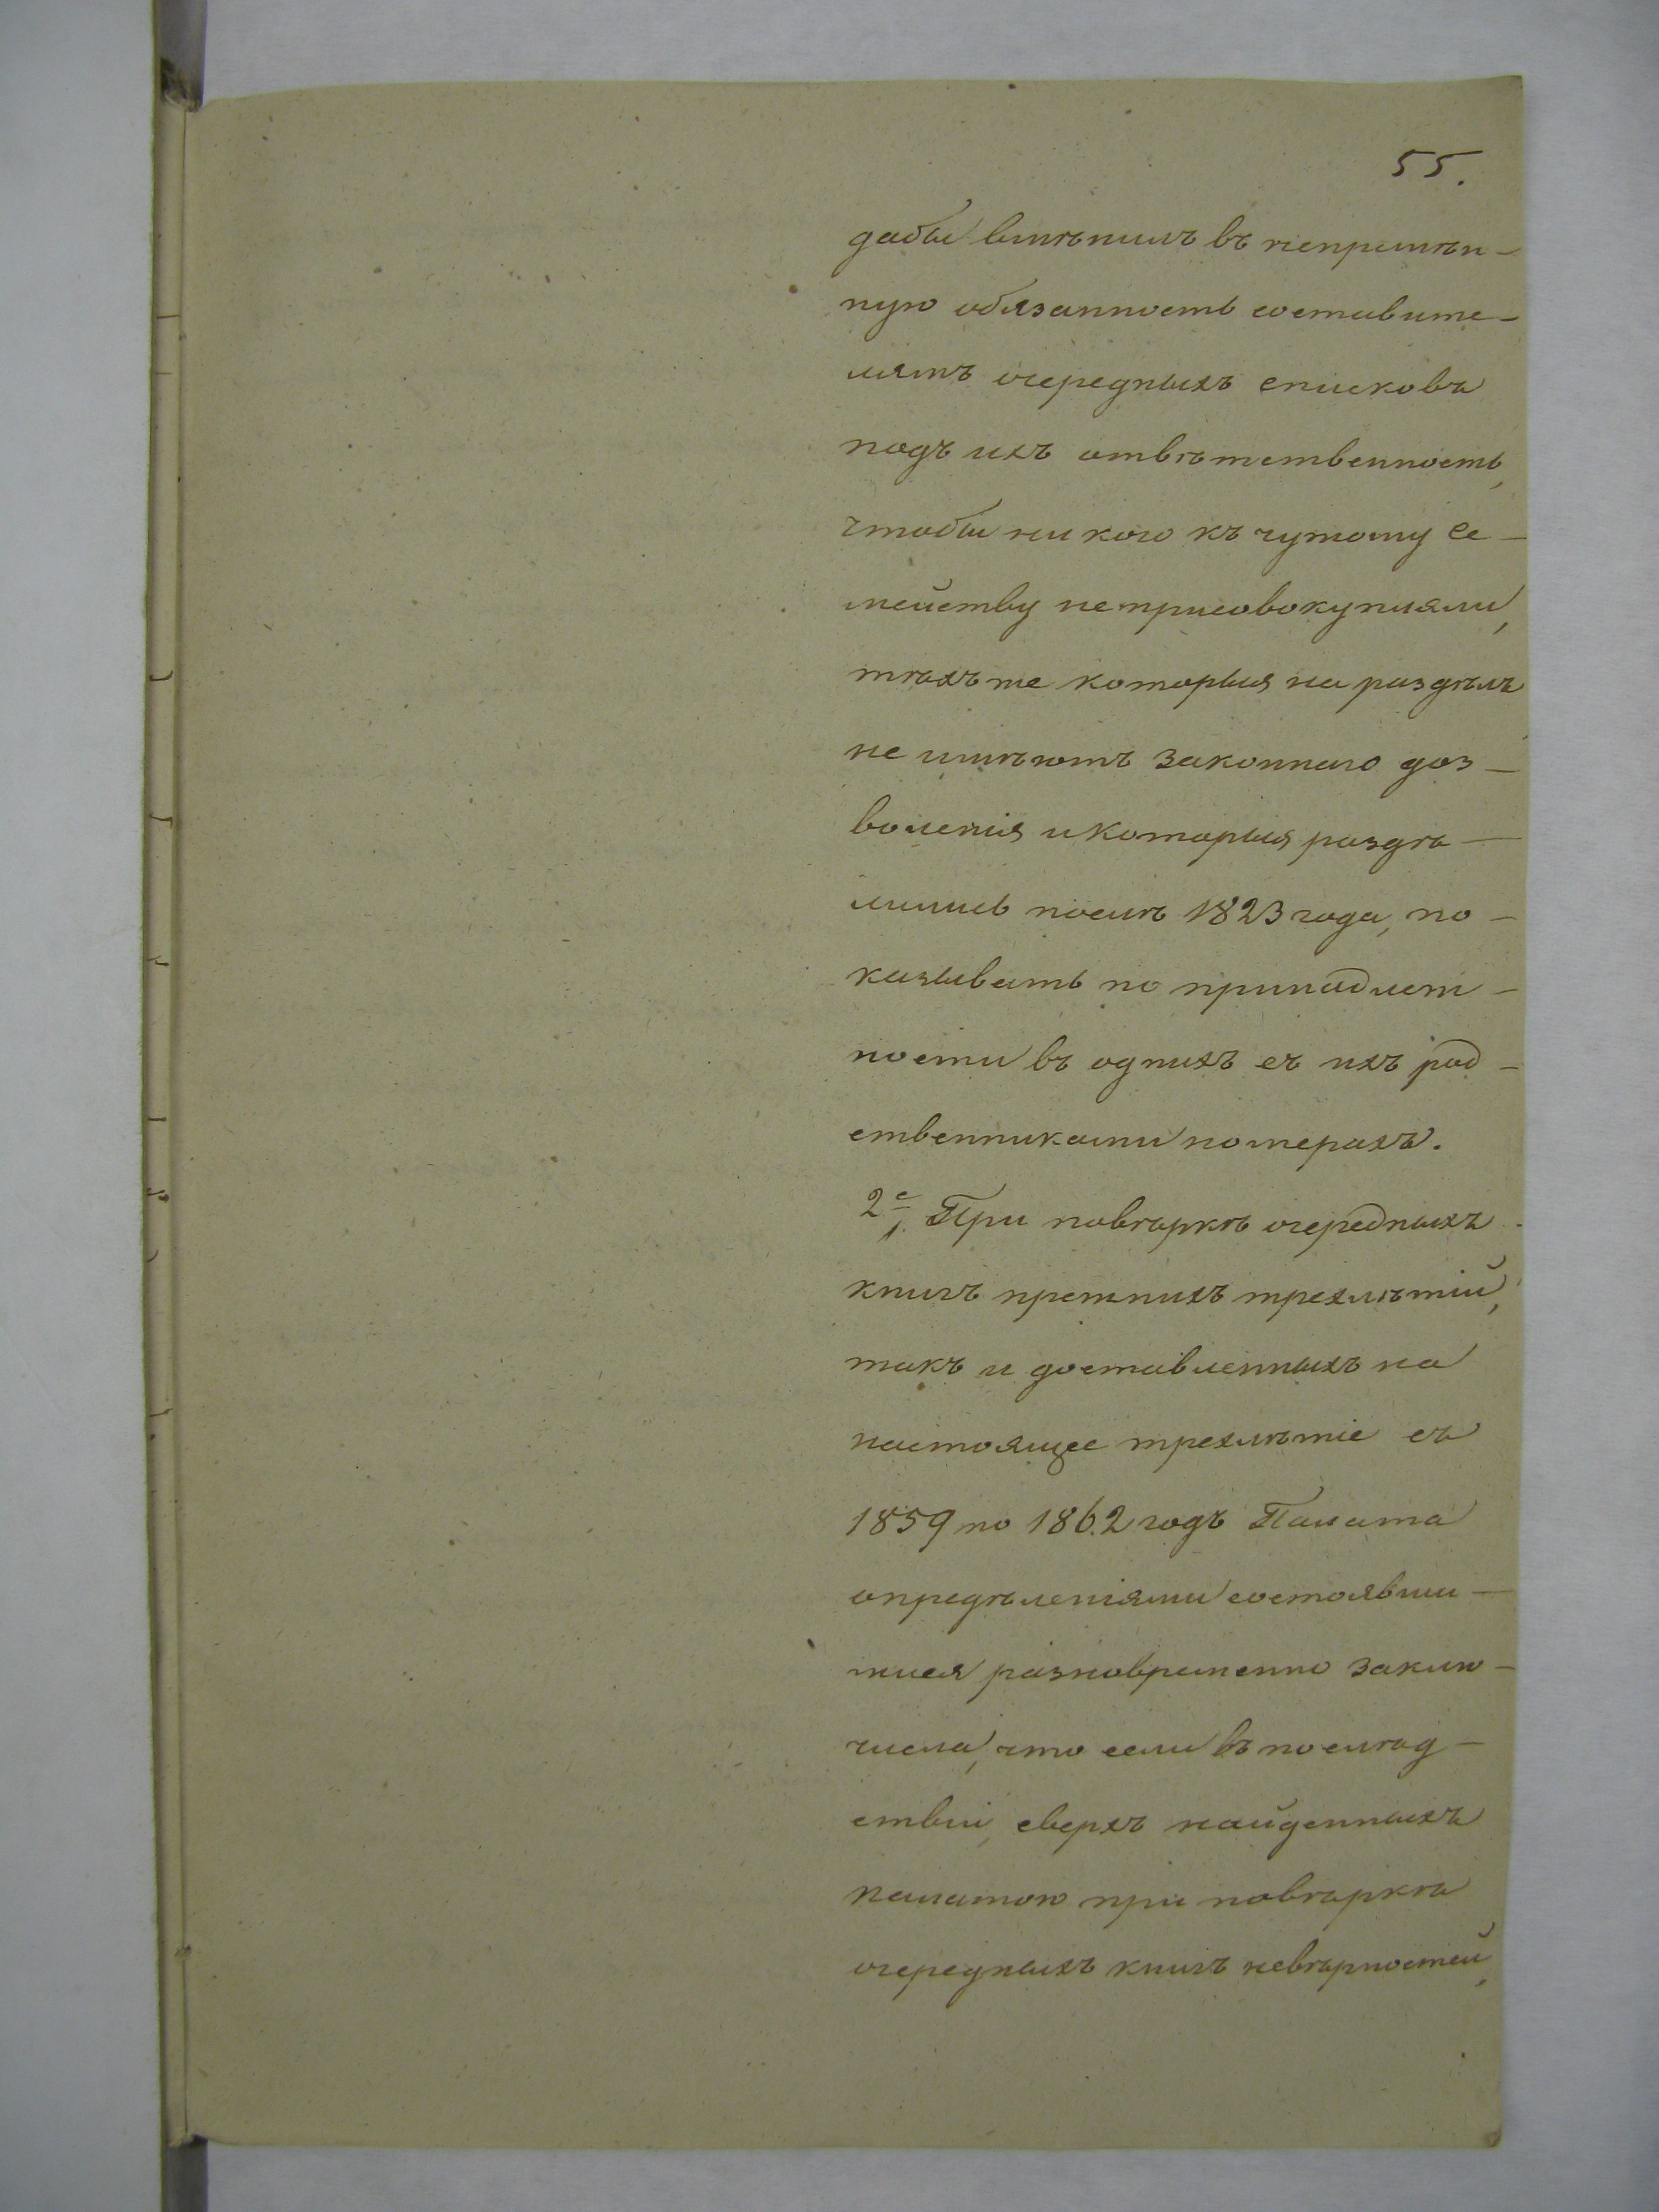 55.
дабы вмѣнилъ въ непремѣн-
ную обязанность составите-
лямъ очередныхъ списковъ
подъ ихъ отвѣтственность,
чтобы ни кого къ чужому се-
мейству не присовокупляли,
тѣхъ же которыя на раздѣлъ
не имѣютъ законнаго доз-
воленія и которыя раздѣ-
лились послѣ 1823 года, по-
казывать по принадлеж-
ности въ однихъ съ ихъ род-
ственниками номерахъ.
2е. При повѣркѣ очередныхъ
книгъ прежнихъ трехлѣтій,
такъ и доставленныхъ на
настоящее трехлѣтіе съ
1859 по 1862 годъ Палата
опредѣленіями состоявши-
мися разновременно заклю-
чила, что если въ послѣд-
ствіи, сверхъ найденныхъ
палатою при повѣркѣ
очередныхъ книгъ невѣрностей,